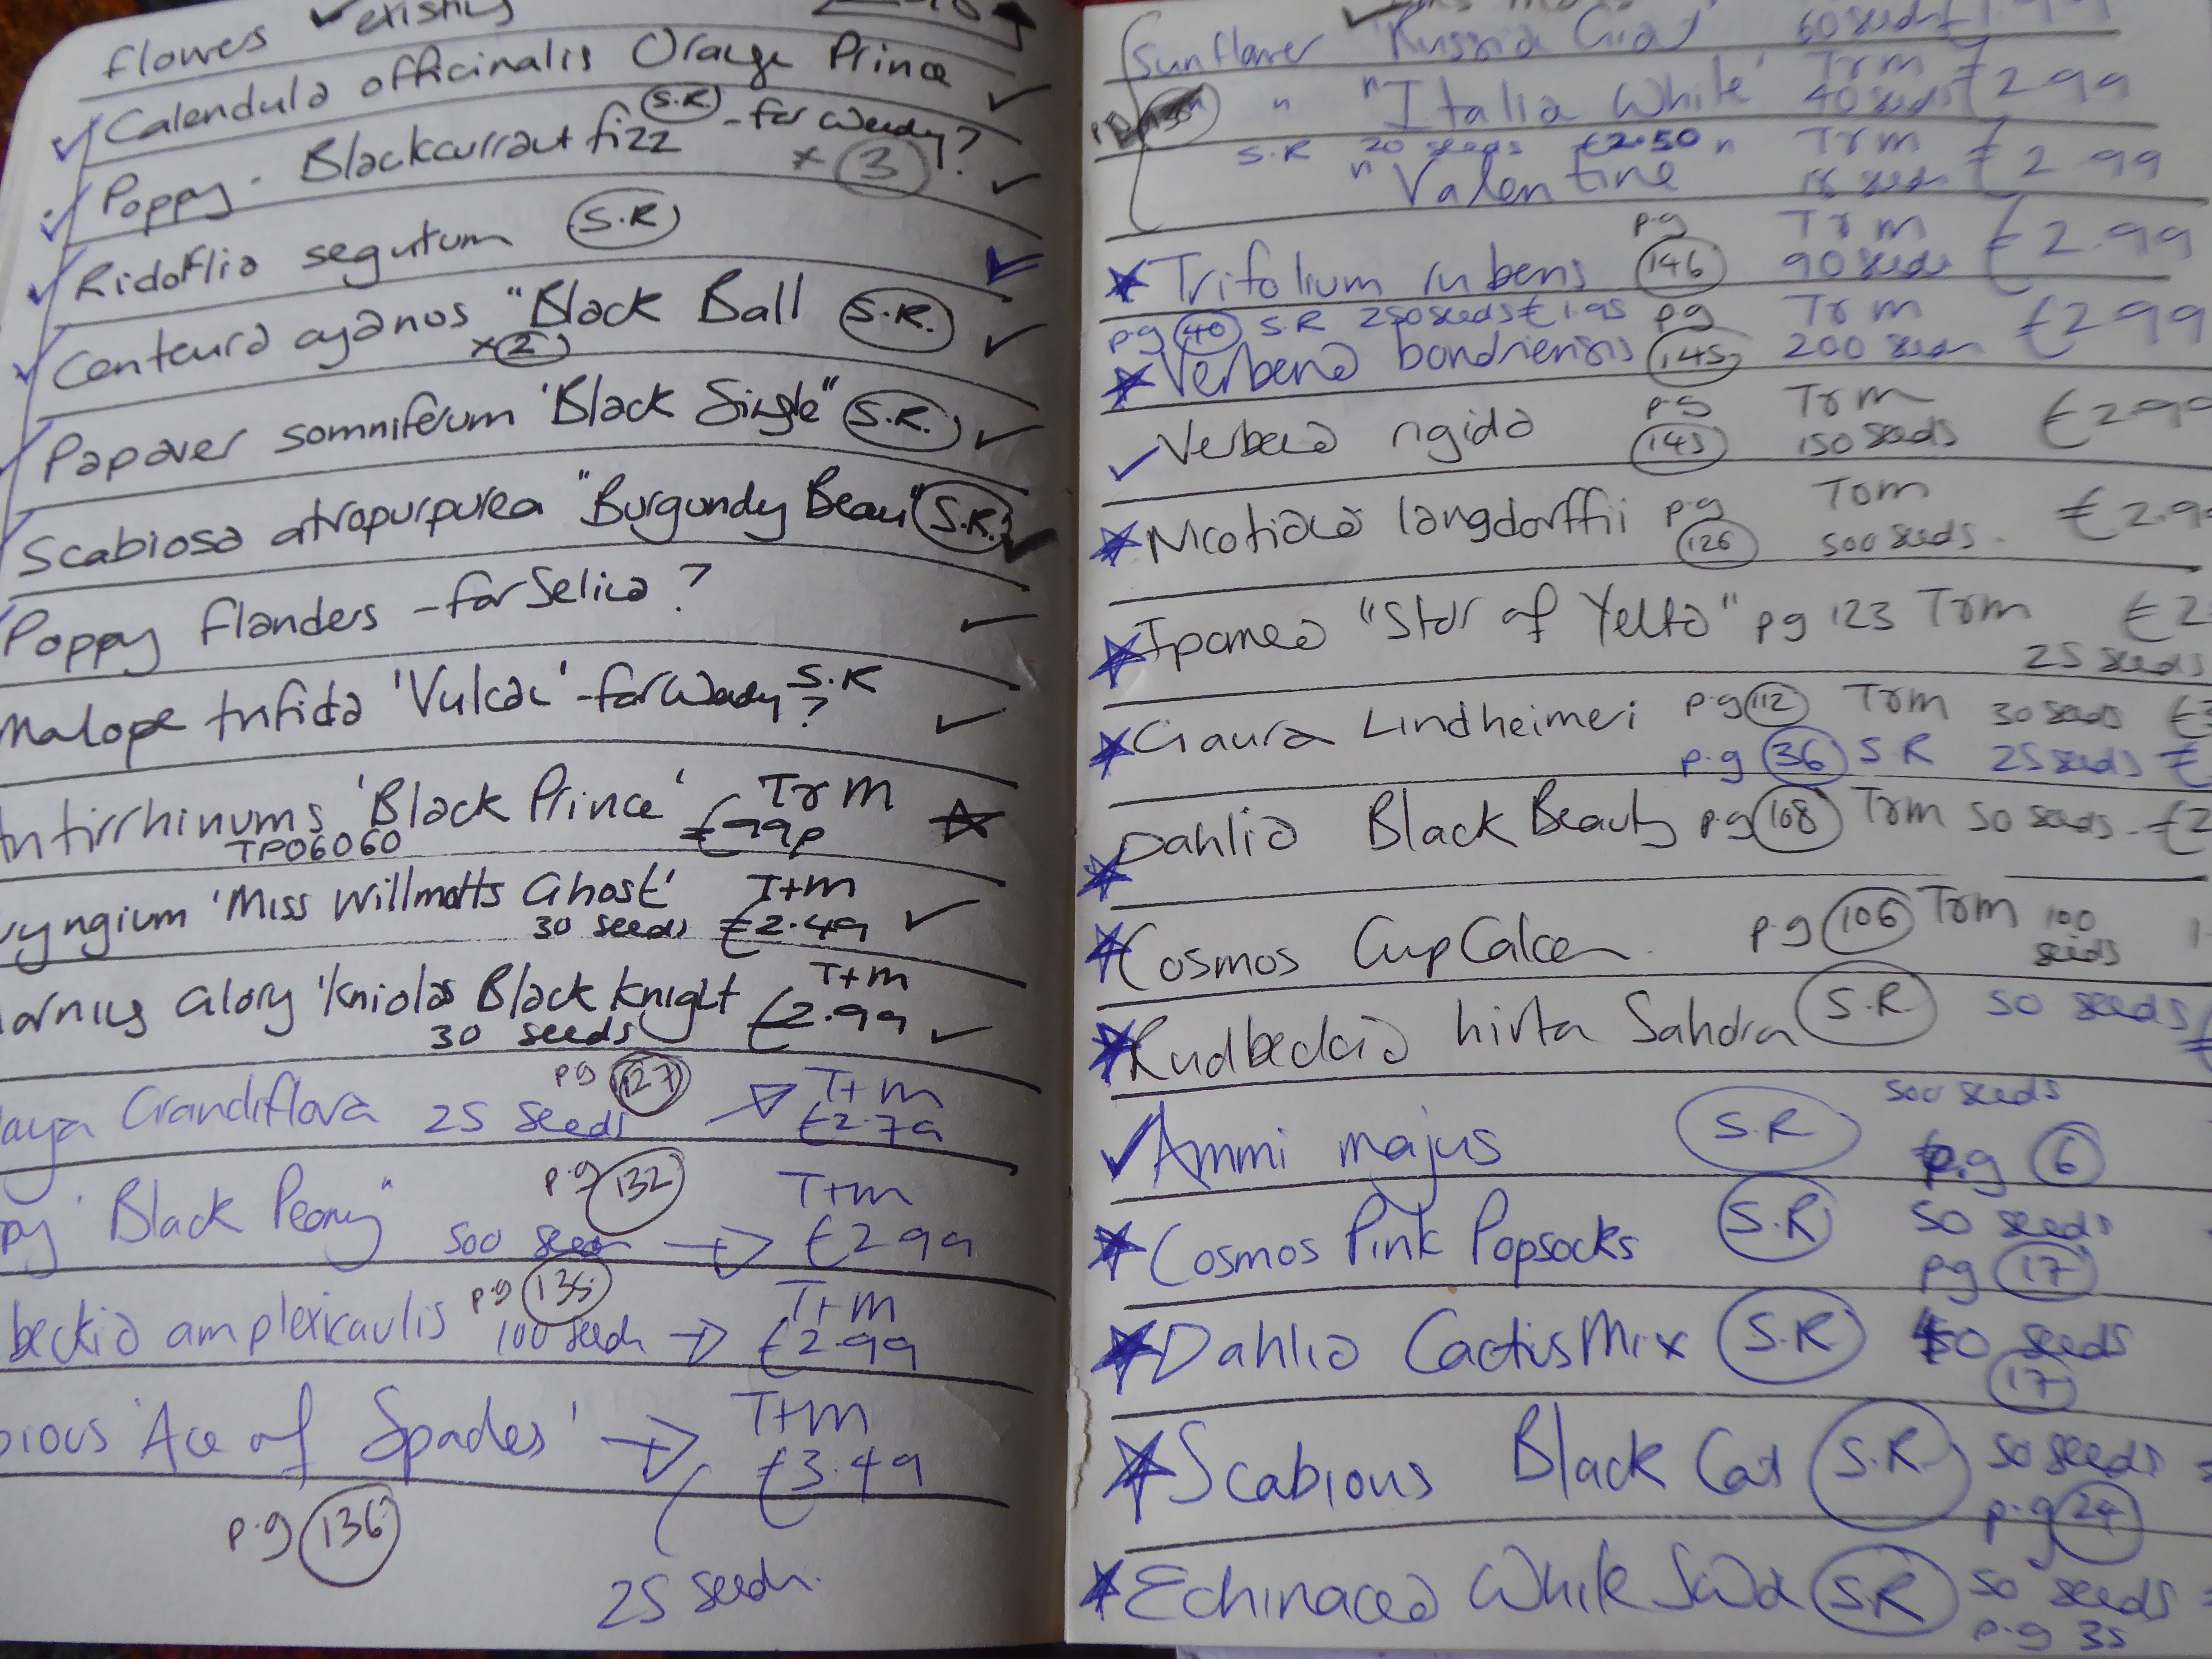 flowes ✓existing
Calendula officinalis Orange Prince ✓
Poppy - Blackcurrant fizz (S.R.) - for Wendy?
x (3) ✓
Ridoflia segutum (S.R)
Centeura cyanos "Black Ball (S.R.) ✓
x (2)
Papaver somniferum 'Black Single" (S.R.) ✓
Scabiosa atropurpurea "Burgundy Beau" (S.R.) ✓
Poppy flanders - for Selica? ✓
Malope trifida 'Vulcan' - for Wendy S.R
? ✓
ntirrhinums 'Black Prince' T&M
TP06060 £99p
yngium 'Miss Willmotts Ghost' T+M
30 seeds £2.49 ✓
orning Glory 'Kniolas Black Knight T+m
30 seeds £2.99 ✓
pg (127) T+m
aya Grandiflora 25 seeds £2.79
p.g (132) T+m
py 'Black Peony" 500 seeds £2.99
p.g (135) T+M
beckia amplexicaulis 100 seeds £2.99
bious 'Ace of Spades' T+m
£3.49
p.g (136)
25 seeds.
Sunflower 'Russia Gia 60 seeds
" "Italia White' T&m £2.99
40 seeds
S.R 20 seeds £2.50 " T&m £2.99
" Valentine 15 seeds
Trifolium rubens p.g (146) T&m £2.99
90 seeds
p.g (40) S.R 250 seeds £1.95 pg T&m £2.99
Verbena bonariensis (145) 200 seeds
✓ Verbena rigida p.g (145) T&m £2.99
150 seeds
Nicotiana langdorffii p.g (126) T&m £2.9
500 seeds.
Ipomea "Star of Yelta" pg 123 T&m £2
25 seeds
Gaura Lindheimeri p.g (112) T&m 30 seeds £
p.g (36) S.R 25 seeds £
Dahlia Black Beauty p.g (108) T&m 50 seeds - £2
Cosmos CupCakes p.g (106) T&m 100
seeds
Rudbeckia hirta Sahara (S.R) 50 seeds
500 seeds
✓ Ammi majus (S.R) p.g (6)
Cosmos Pink Popsocks (S.R) 50 seeds
pg (17)
Dahlia Cactus Mix (S.R) 50 seeds
(17)
Scabious Black Cat (S.R) 50 seeds
p.g (24)
Echinacea White Swan (S.R) 50 seeds
p.g 35